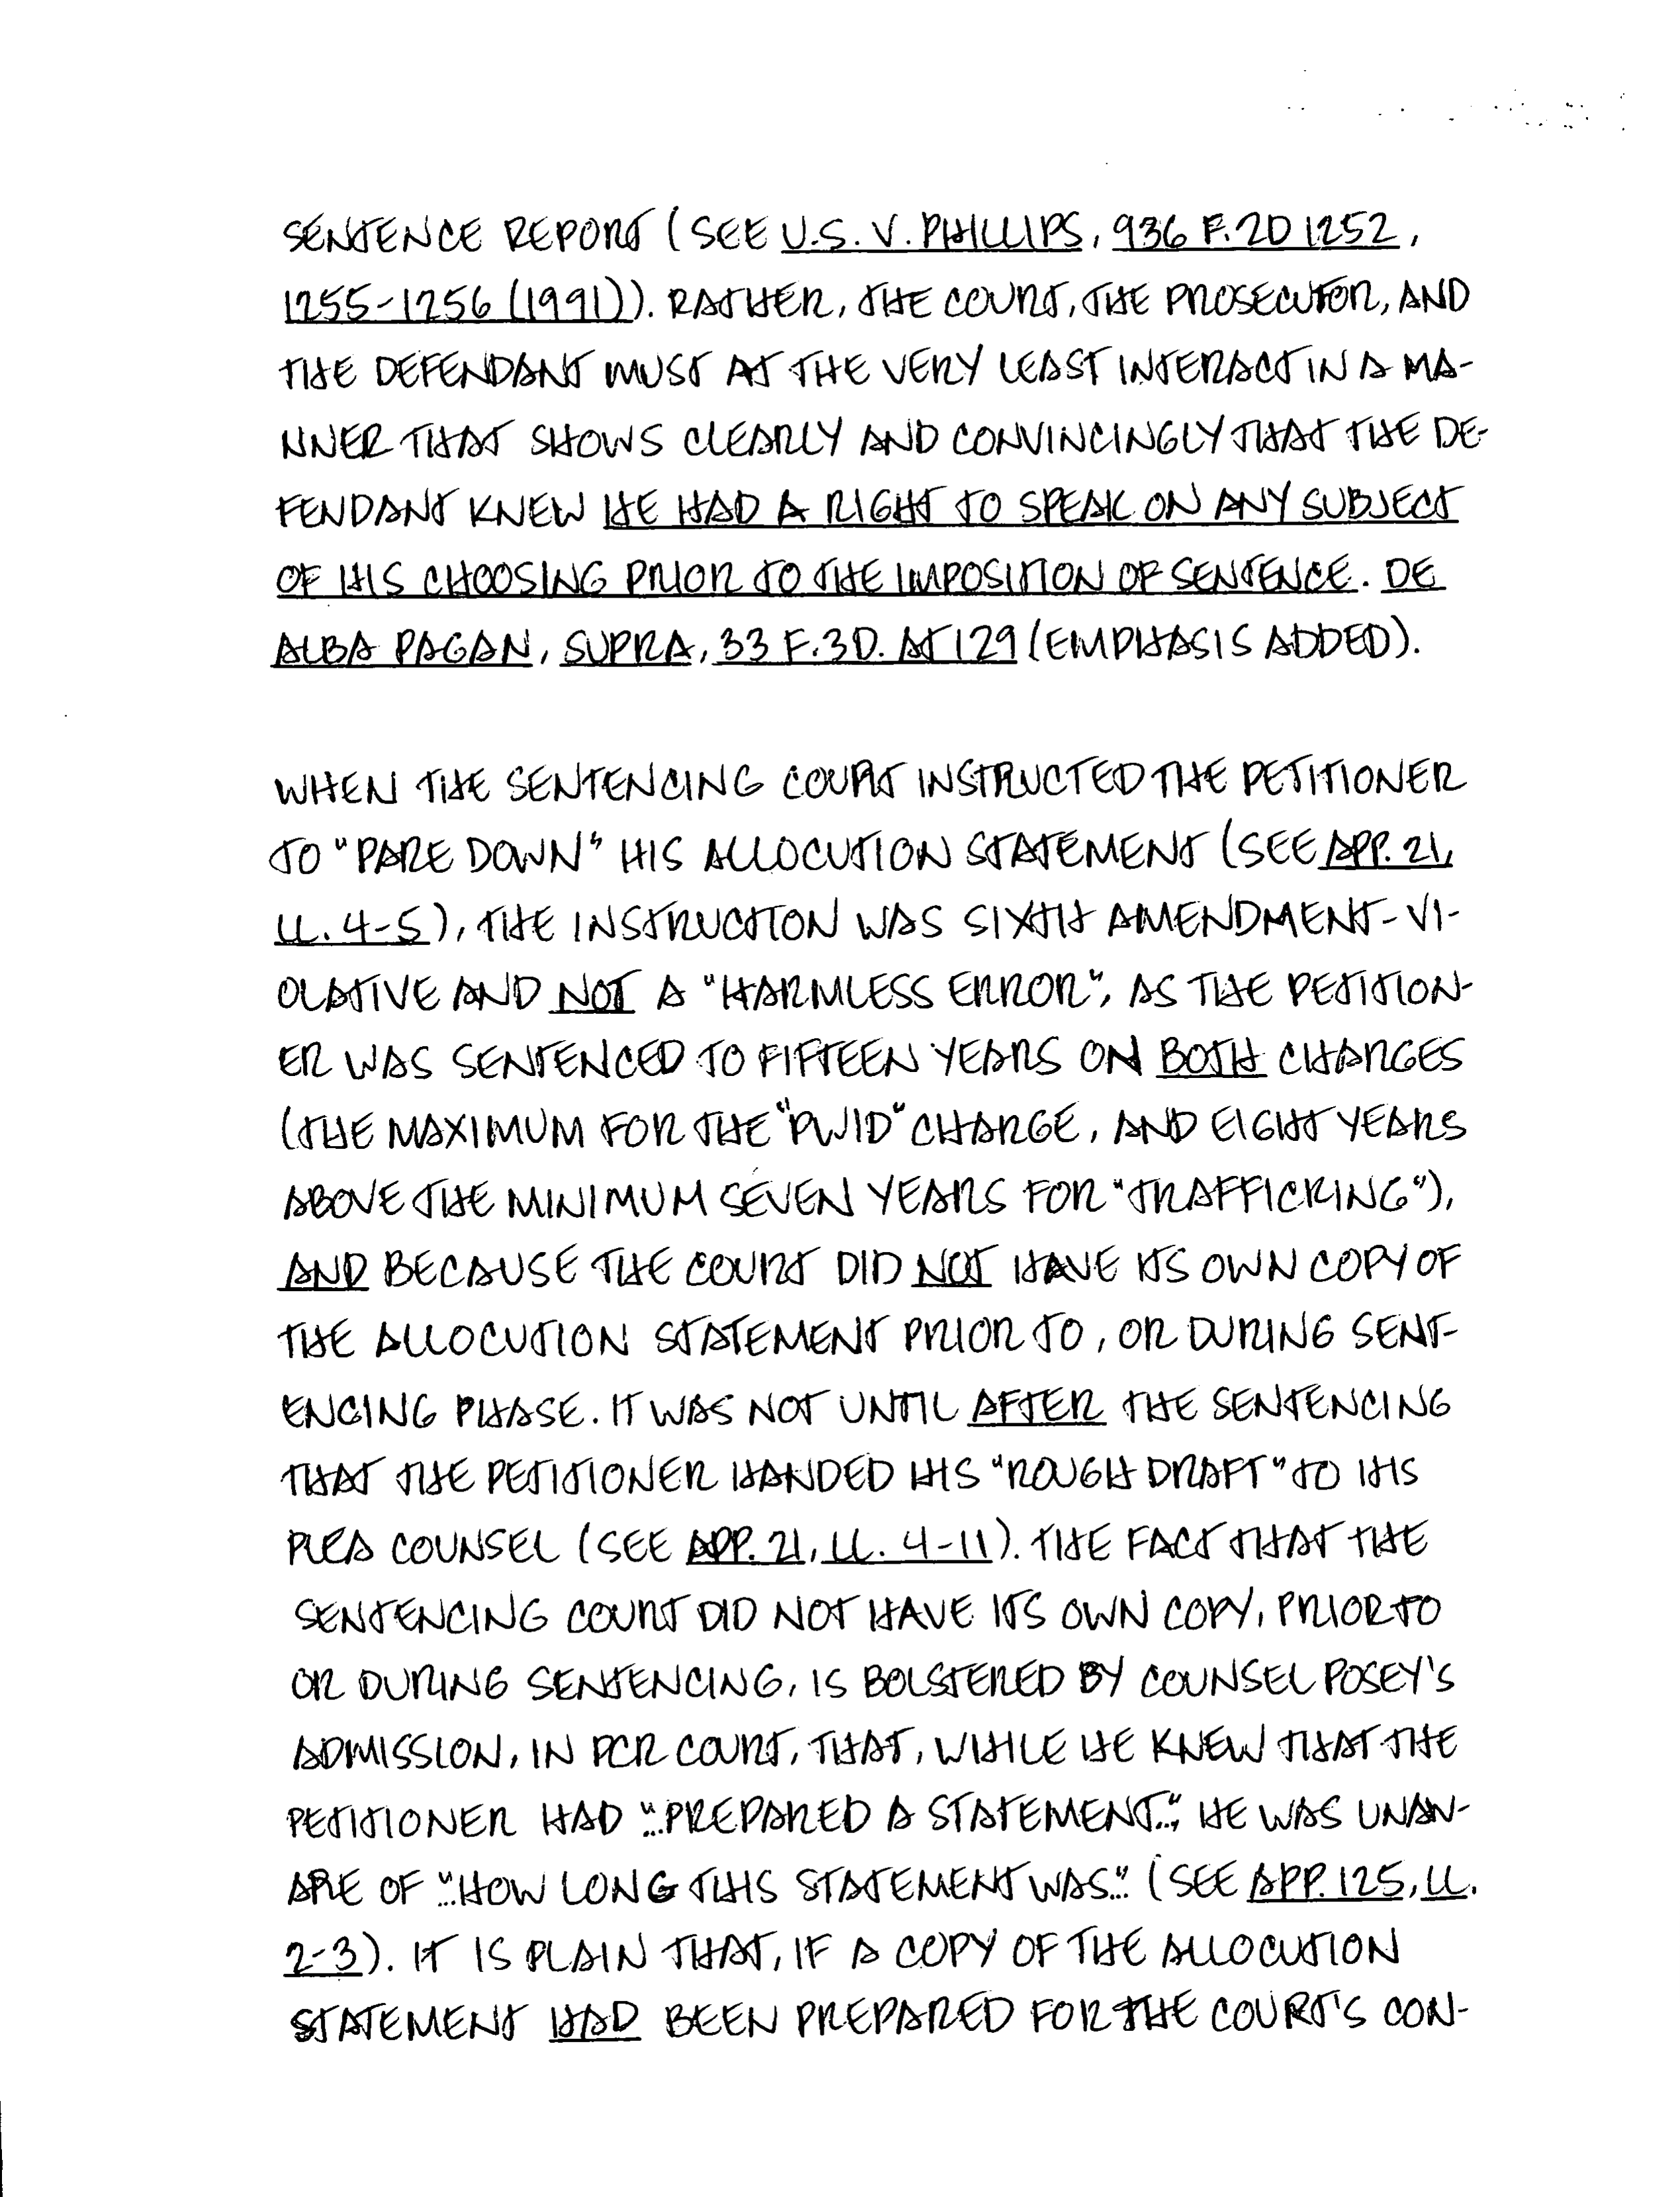 SENTENCE REPORT (SEE U.S. V. PHILLIPS, 936 F.2D 1252,
1255-1256 (1991)). RATHER, THE COURT, THE PROSECUTOR, AND
THE DEFENDANT MUST AT THE VERY LEAST INTERACT IN A MA-
NNER THAT SHOWS CLEARLY AND CONVINCINGLY THAT THE DE-
FENDANT KNEW HE HAD A RIGHT TO SPEAK ON ANY SUBJECT
OF HIS CHOOSING PRIOR TO THE IMPOSITION OF SENTENCE. DE
ALBA PAGAN, SUPRA, 33 F.3D. AT 129 (EMPHASIS ADDED).

WHEN THE SENTENCING COURT INSTRUCTED THE PETITIONER
TO "PARE DOWN" HIS ALLOCUTION STATEMENT (SEE APP. 21,
LL. 4-5), THE INSTRUCTION WAS SIXTH AMENDMENT-VI-
OLATIVE AND NOT A "HARMLESS ERROR", AS THE PETITION-
ER WAS SENTENCED TO FIFTEEN YEARS ON BOTH CHARGES
(THE MAXIMUM FOR THE "PWID" CHARGE, AND EIGHT YEARS
ABOVE THE MINIMUM SEVEN YEARS FOR "TRAFFICKING"),
AND BECAUSE THE COURT DID NOT HAVE ITS OWN COPY OF
THE ALLOCUTION STATEMENT PRIOR TO, OR DURING SENT-
ENCING PHASE. IT WAS NOT UNTIL AFTER THE SENTENCING
THAT THE PETITIONER HANDED HIS "ROUGH DRAFT" TO HIS
PLEA COUNSEL (SEE APP. 21, LL. 4-11). THE FACT THAT THE
SENTENCING COURT DID NOT HAVE ITS OWN COPY, PRIOR TO
OR DURING SENTENCING, IS BOLSTERED BY COUNSEL POSEY'S
ADMISSION, IN PCR COURT, THAT, WHILE HE KNEW THAT THE
PETITIONER HAD "...PREPARED A STATEMENT...", HE WAS UNAW-
ARE OF "...HOW LONG THIS STATEMENT WAS..." (SEE APP. 125, LL.
2-3). IT IS PLAIN THAT, IF A COPY OF THE ALLOCUTION
STATEMENT HAD BEEN PREPARED FOR THE COURT'S CON-